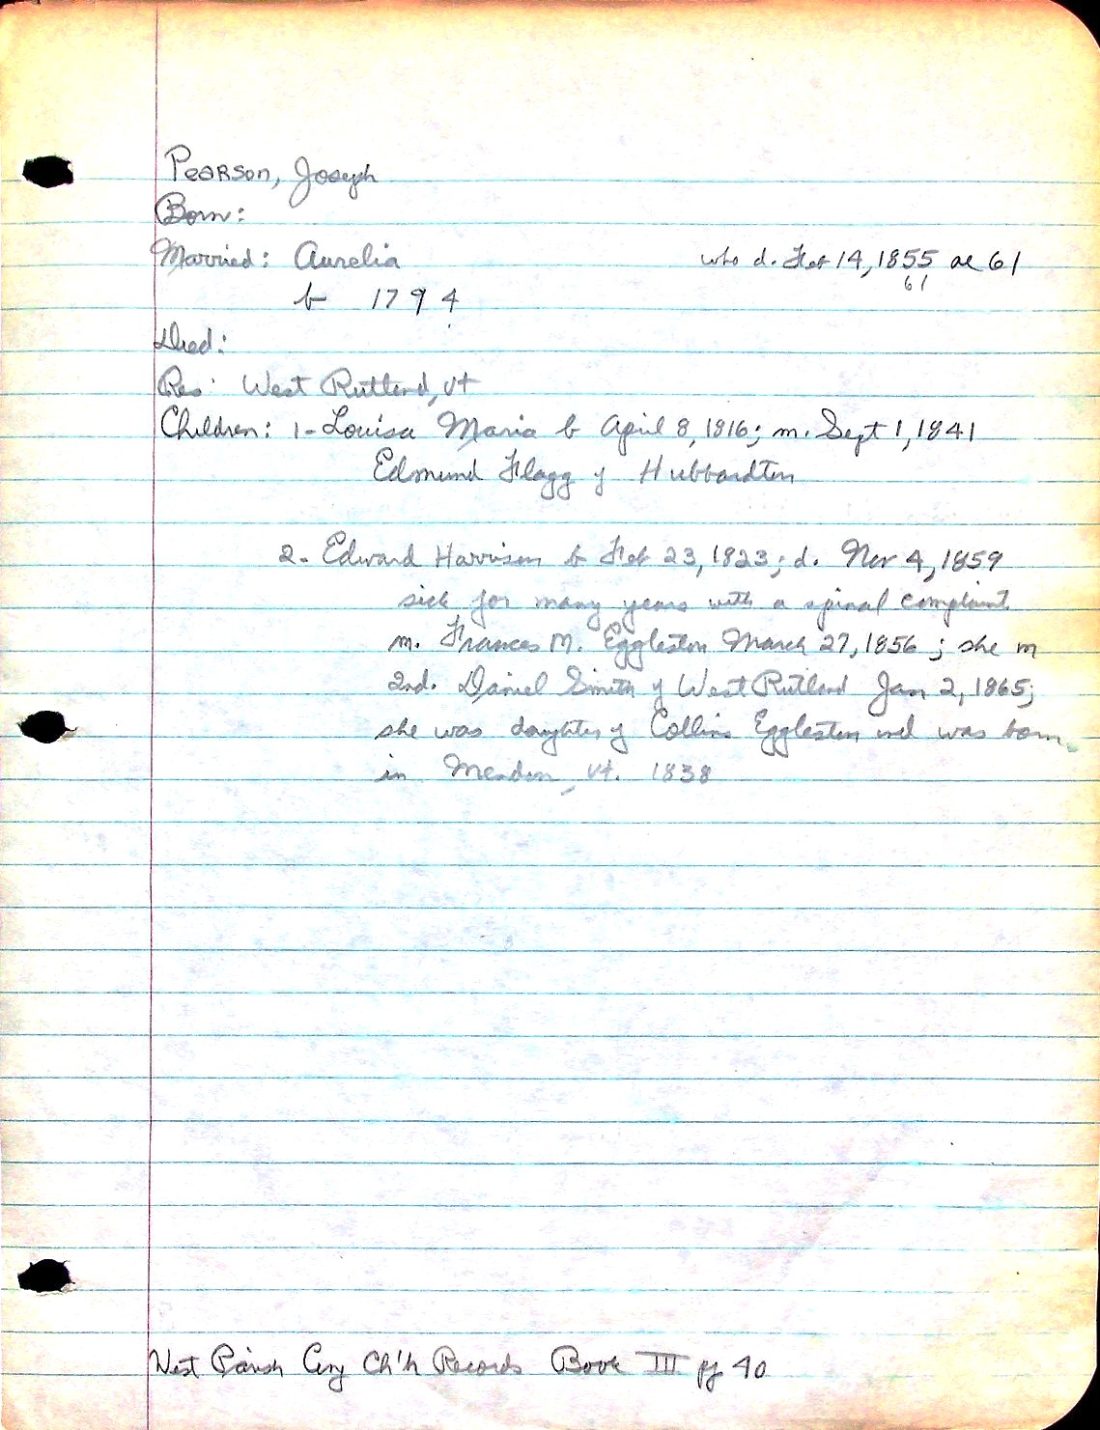 Pearson, Joseph
Born:
Married: Aurelia who d. Feb 14, 1855 ae 61
61
b 1794
Died:
Res: West Rutland, Vt
Children: 1- Louisa Maria b April 8, 1816; m. Sept 1, 1841
Edmund Flagg of Hubbardton
2- Edward Harrison b Feb 23, 1823; d. Nov 4, 1859
sick for many years with a spinal complaint
m. Frances M. Eggleston March 27, 1856; she m
2nd. Daniel Smith of West Rutland Jan 2, 1865;
she was daughter of Collins Eggleston and was born
in Mendon, Vt. 1838
West Parish Cong Ch'h Records Book III pg 40